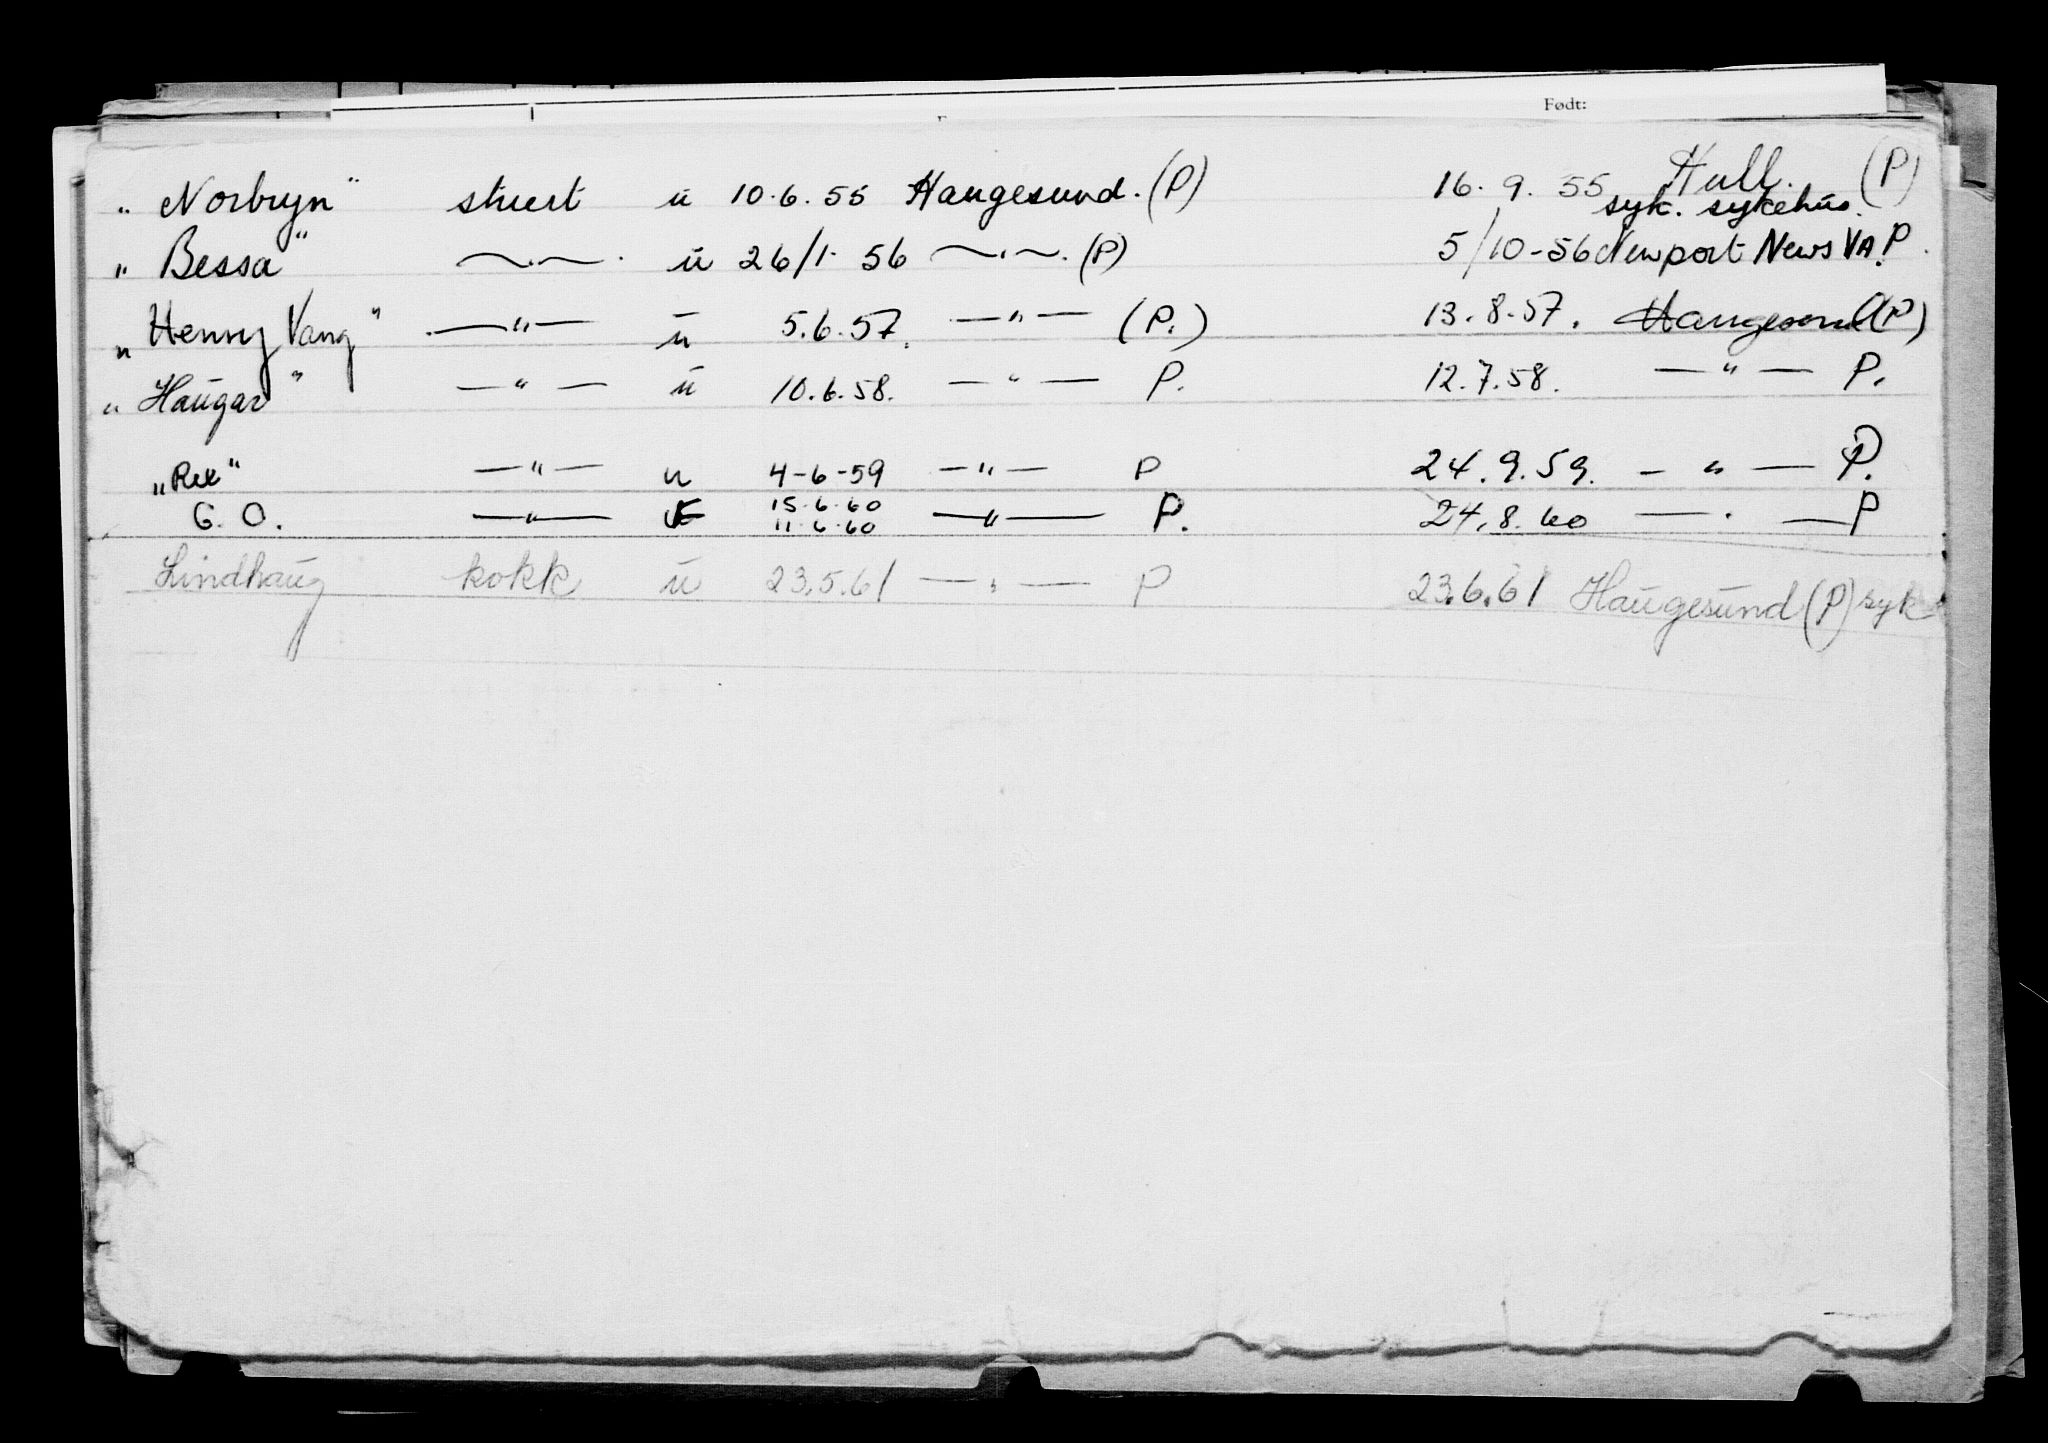 Født:
„ Norbryn" stuert u 10.6.55 Haugesund. (P) 16. 9. 55 Hull. (P)
syk. sykehus.
„ Bessa" —.—. u 26/1- 56 —.—. (P) 5/10-56 Newport News VA. P.
„ Henny Vang" —"— u 5.6.57. —"— (P.) 13.8.57. Haugesund (P)
„ Haugar" —"— u 10.6.58. —"— P. 12.7.58. —"— P.
„Rex" —"— u 4-6-59 —"— P 24.9.59. —"— P.
G. O. —"— 15.6.60 —"— P. 24.8.60 —.— P
11.6.60
Lindhaug kokk u 23.5.61 —"— P 23.6.61 Haugesund (P) syk